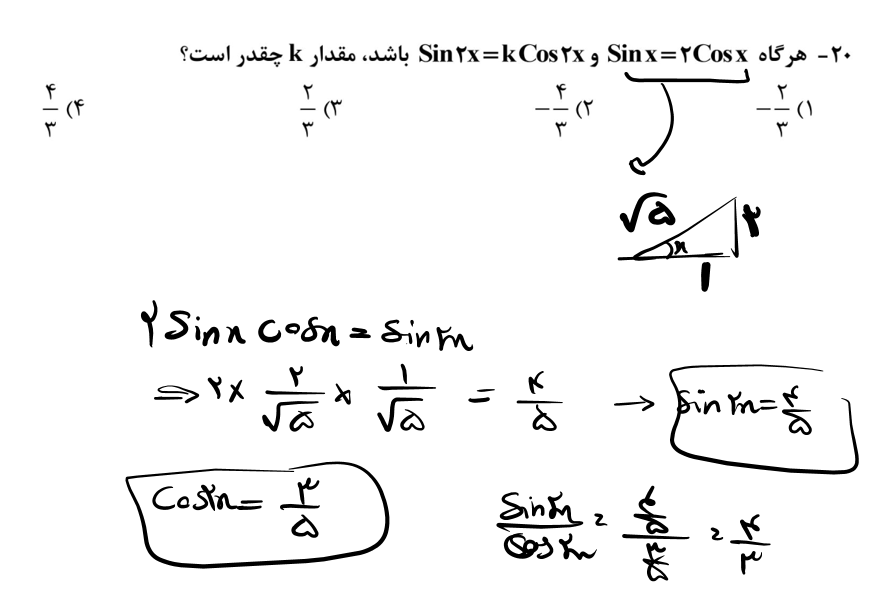 ۲۰- هرگاه Sin x = ۲Cos x و Sin ۲x = k Cos ۲x باشد، مقدار k چقدر است؟
۱) -۲/۳ ۲) -۴/۳ ۳) ۲/۳ ۴) ۴/۳
√۵ x ۲
۱
۲ Sin x Cos x = Sin ۲x
⇒ ۲ × ۲/√۵ × ۱/√۵ = ۴/۵ → Sin ۲x = ۴/۵
Cos ۲x = ۳/۵
Sin ۲x / Cos ۲x = (۴/۵)/(۳/۵) = ۴/۳